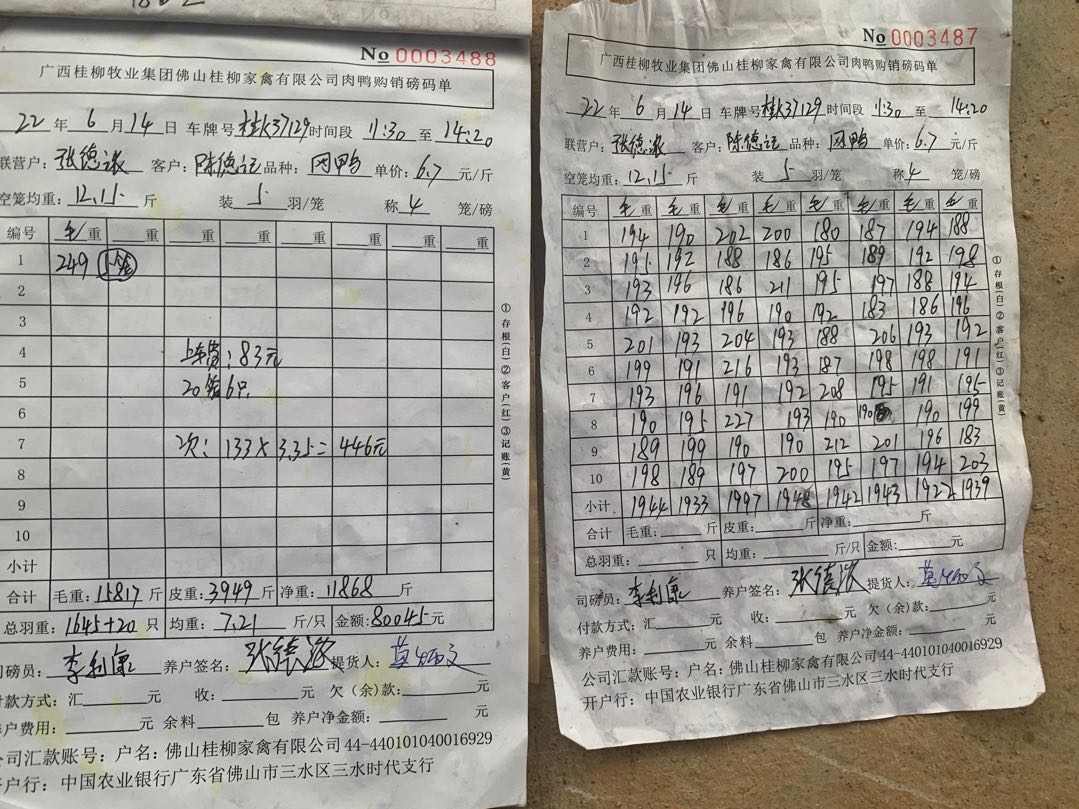 No 0003488
广西桂柳牧业集团佛山桂柳家禽有限公司肉鸭购销磅码单
22 年 6 月 14 日 车牌号 桂K37129 时间段 11:30 至 14:20
联营户: 张德泳 客户: 陈德记 品种: 网鸭 单价: 6.7 元/斤
空笼均重: 12.15 斤 装 5 羽/笼 称 4 笼/磅
编号 毛重 重 重 重 重 重 重 重
1 249 5笼
2
3
4 上车费:83元
5 20笼6只
6
7 次:133×3.35=446元
8
9
10
小计
合计 毛重: 15817 斤 皮重: 3949 斤 净重: 11868 斤
总羽重: 1645+20 只 均重: 7.21 斤/只 金额: 80045 元
司磅员: 李利 养户签名: 张德泳 提货人: 莫炳文
付款方式: 汇 元 收: 元 欠(余)款: 元
养户费用: 元 余料 包 养户净金额: 元
公司汇款账号: 户名: 佛山桂柳家禽有限公司 44-440101040016929
开户行: 中国农业银行广东省佛山市三水区三水时代支行
①存根(白)②客户(红)③记账(黄)
No 0003487
广西桂柳牧业集团佛山桂柳家禽有限公司肉鸭购销磅码单
22 年 6 月 14 日 车牌号 桂K37129 时间段 11:30 至 14:20
联营户: 张德泳 客户: 陈德记 品种: 网鸭 单价: 6.7 元/斤
空笼均重: 12.15 斤 装 5 羽/笼 称 4 笼/磅
编号 毛重 毛重 毛重 毛重 毛重 毛重 毛重 毛重
1 194 190 202 200 180 187 194 188
2 195 192 188 186 195 189 192 198
3 193 196 186 211 195 197 188 194
4 192 192 196 190 192 183 186 196
5 201 193 204 193 188 206 193 192
6 199 191 216 193 187 198 198 191
7 193 196 191 192 208 195 191 195
8 190 195 227 193 190 190 190 199
9 189 199 190 190 212 201 196 183
10 198 189 197 200 195 197 194 203
小计 1944 1933 1997 1948 1942 1943 1922 1939
合计 毛重: 斤 皮重: 斤 净重: 斤
总羽重: 只 均重: 斤/只 金额: 元
司磅员: 李利 养户签名: 张德泳 提货人: 莫炳文
付款方式: 汇 元 收: 元 欠(余)款: 元
养户费用: 元 余料 包 养户净金额: 元
公司汇款账号: 户名: 佛山桂柳家禽有限公司 44-440101040016929
开户行: 中国农业银行广东省佛山市三水区三水时代支行
①存根(白)②客户(红)③记账(黄)